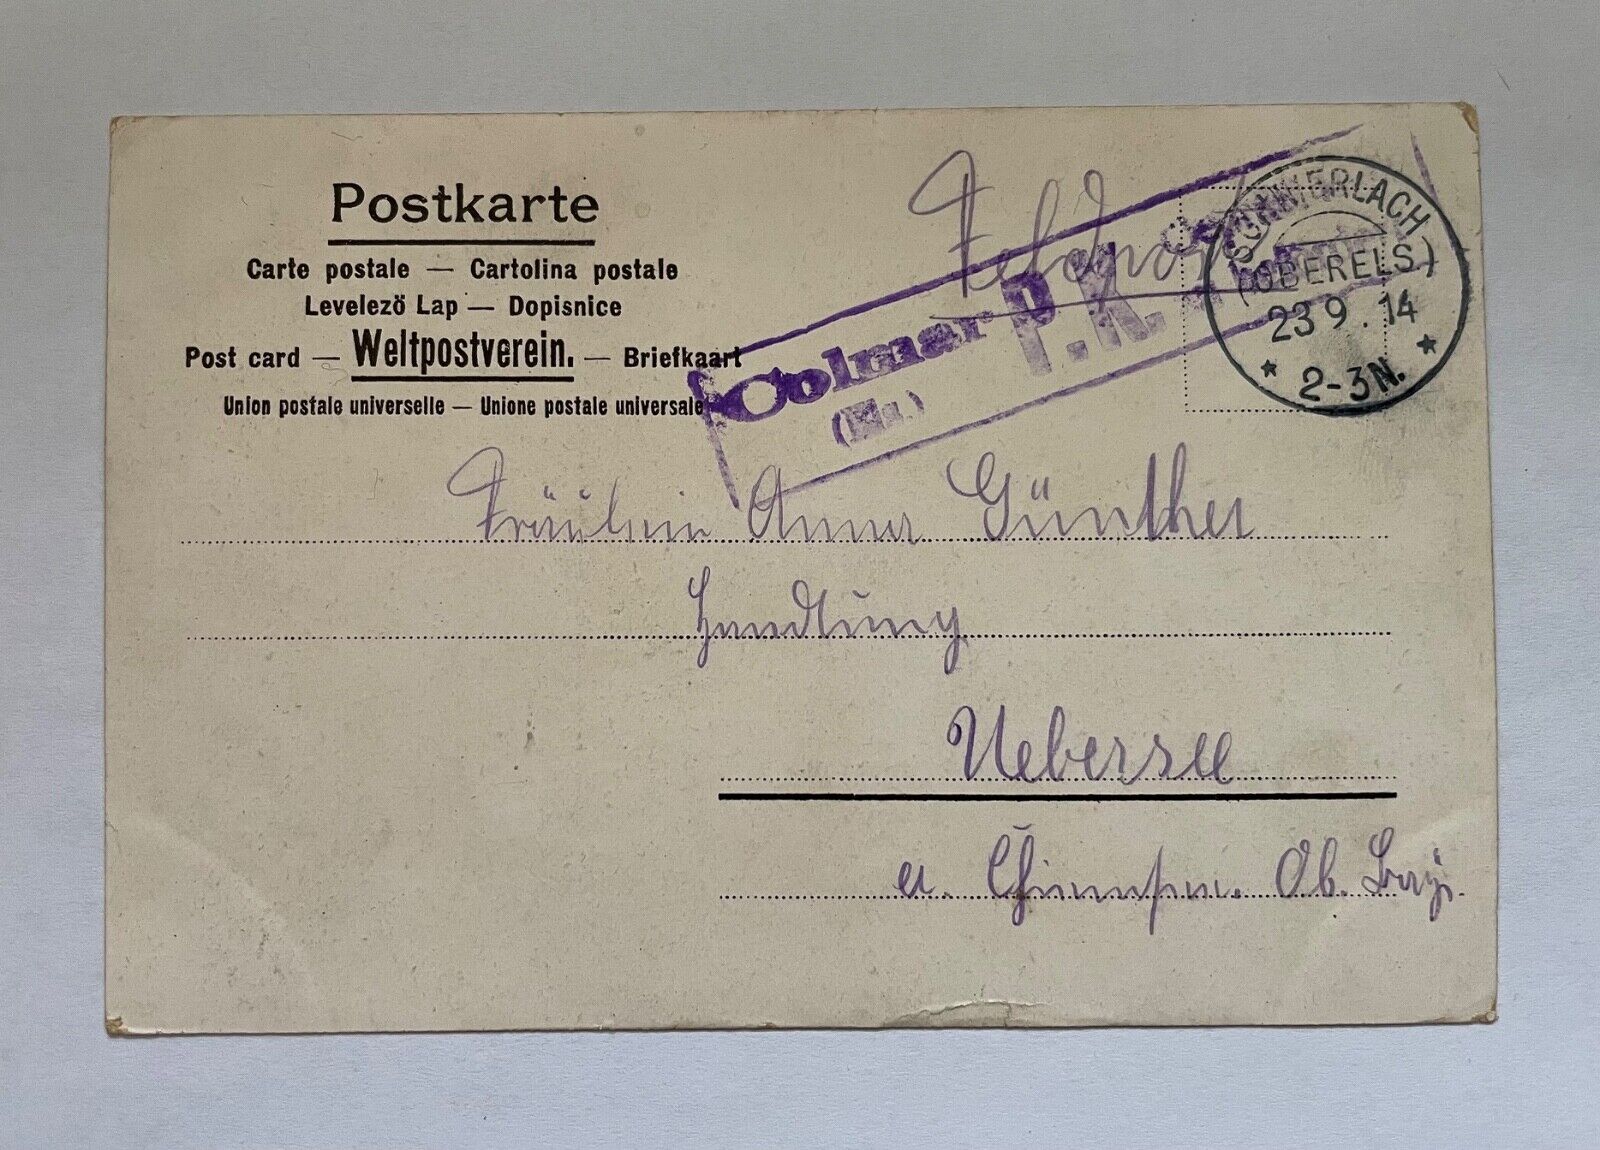 Postkarte
Carte postale — Cartolina postale
Levelező Lap — Dopisnice
Post card — Weltpostverein. — Briefkaart
Union postale universelle — Unione postale universale
Feldpost
Colmar P.K.
SCHNIERLACH
(OBERELS.)
23 9. 14
* 2-3N. *
Fräulein Anna Günther
Handlung
Uebersee
a. Chiemsee. Ob. Bay.